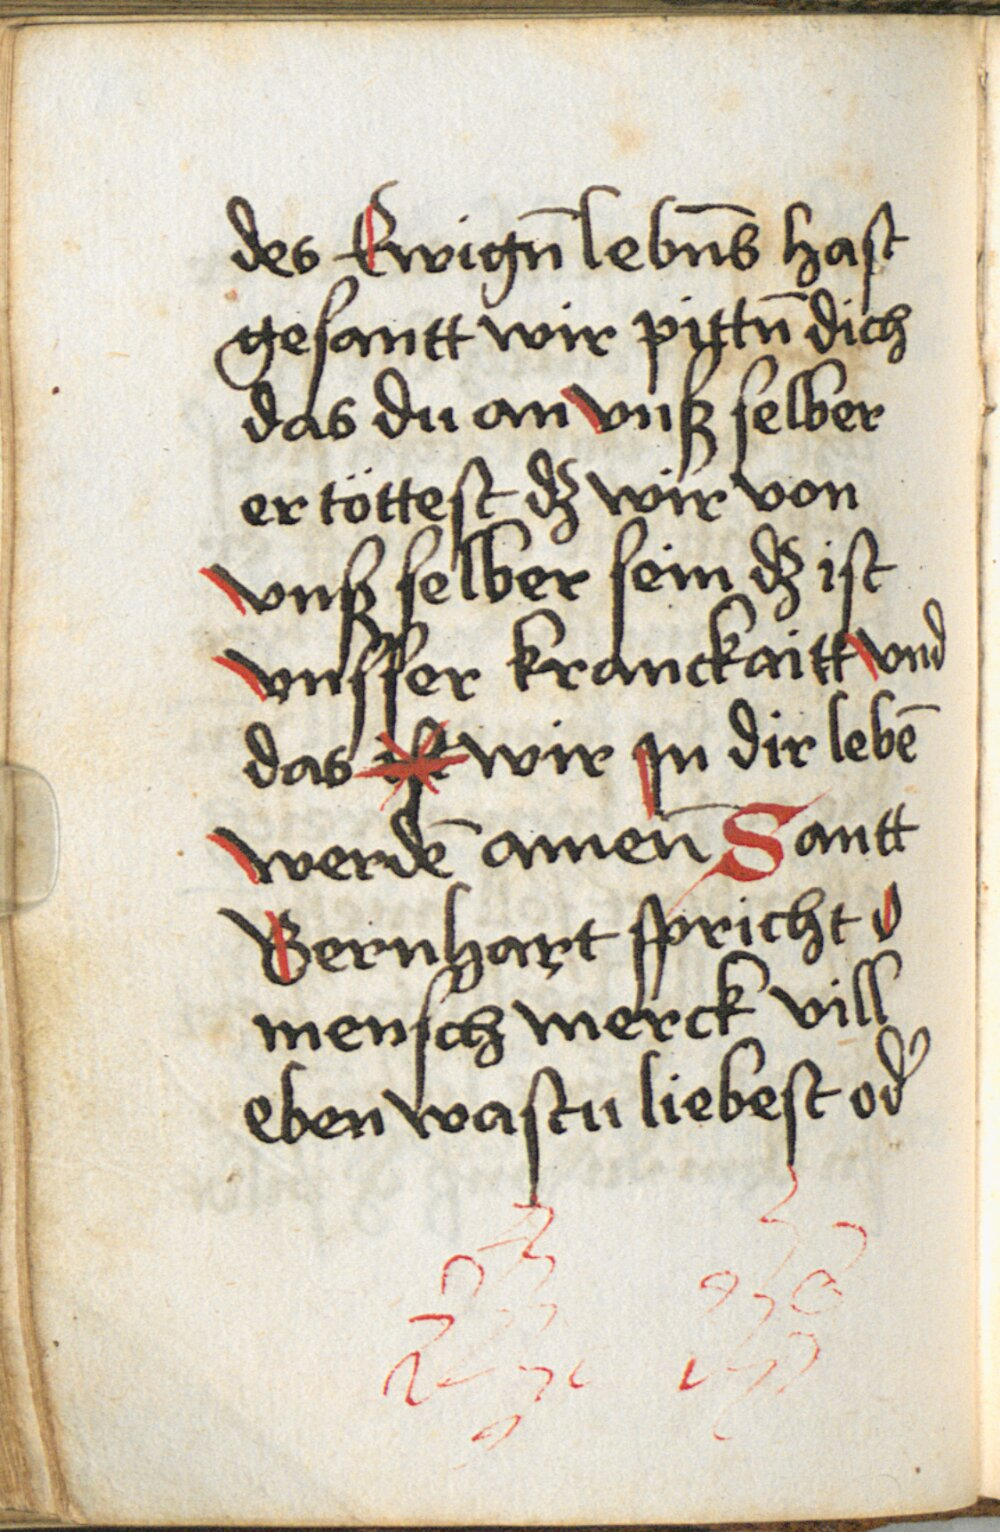 des Ewigñ lebñs hast
gesantt wir pittñ dich
das du an vnß selber
er töttest dz wir von
vnß selber sein dz ist
vnsser kranckaitt vnd
das ist wir jn dir lebē
werdē amen̄ Santt
Bernhart spricht o
mensch merck vill
eben wastu liebest od᾽